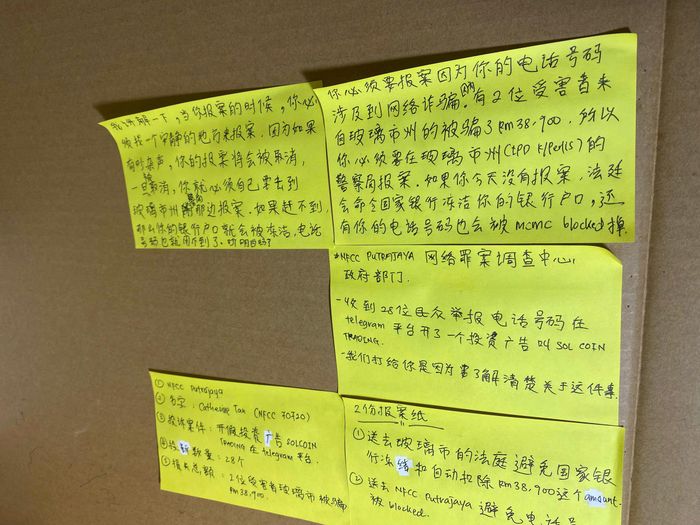 我讲解一下，当你报案的时候，你必
须找一个安静的地方来报案，因为如果
有吵杂声，你的报案将会被取消，
一旦被取消，你就必须自己亲自到
玻璃市州那边报案，如果赶不到，
那么你的银行户口就会被冻洁，电话
号码也就用不到了。听明白吗？
你必须要报案因为你的电话号码
涉及到网络诈骗。有2位受害者来
自玻璃市州的被骗了RM38,900，所以
你必须要在玻璃市州 (IPD K/Perlis) 的
警察局报案。如果你今天没有报案，法廷
会命令国家银行冻洁你的银行户口，还
有你的电话号码也会被 mcmc blocked掉
*NFCC PUTRAJAYA 网络罪案调查中心，
政府部门
-收到28位民众举报电话号码在
telegram 平台开了一个投资广告叫 SOL COIN
TRADING.
-我们打给你是因为要了解清楚关于这件案.
① NFCC Putrajaya
② 名字：Catherine Tan (NFCC 70720)
③ 投诉案件：开假投资广告 SOLCOIN
TRADING 在 telegram 平台.
④ 数量：28个
⑤ 损失总额：2位受害者玻璃市被骗
RM 38,900.
2份报案纸
① 送去玻璃市的法庭避免国家银
行冻结和自动扣除 RM38,900这个 amount.
② 送去 NFCC Putrajaya 避免电话号
被 blocked.